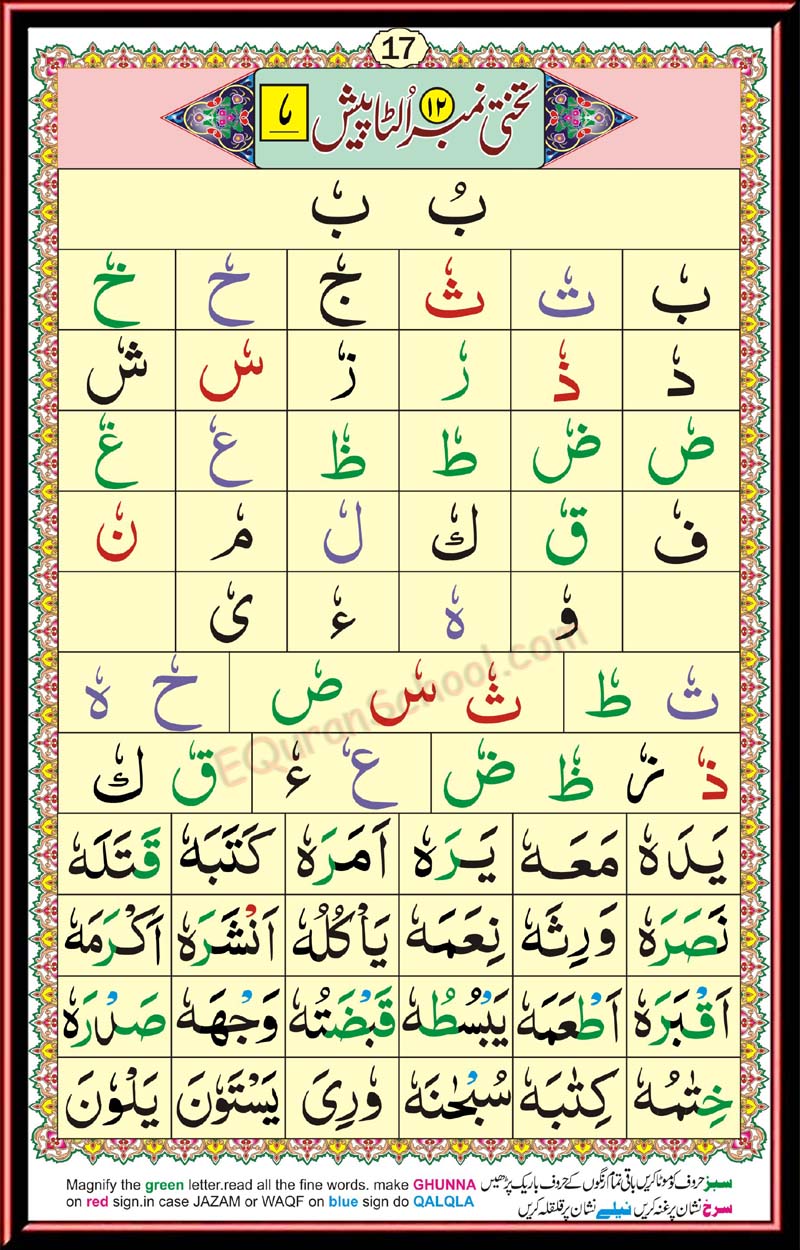 17
تختی نمبر ۱۲ اُلٹا پیش ◌ٗ
بُ بٗ
بٗ تٗ ثٗ جٗ حٗ خٗ
دٗ ذٗ رٗ زٗ سٗ شٗ
صٗ ضٗ طٗ ظٗ عٗ غٗ
فٗ قٗ كٗ لٗ مٗ نٗ
وٗ هٗ ءٗ یٗ
تٗ طٗ ثٗ سٗ صٗ حٗ هٗ
ذٗ زٗ ظٗ ضٗ عٗ ءٗ قٗ كٗ
یَدَهٗ مَعَهٗ یَرَهٗ اَمَرَهٗ كَتَبَهٗ قَتَلَهٗ
نَصَرَهٗ وَرِثَهٗ نِعَمَهٗ یَاْكُلُهٗ اَنْشَرَهٗ اَكْرَمَهٗ
اَقْبَرَهٗ اَطْعَمَهٗ یَبْسُطُهٗ قَبْضَتُهٗ وَجْهَهٗ صَدْرَهٗ
خِتٰمُهٗ كِتٰبَهٗ سُبْحٰنَهٗ وٗرِیَ یَسْتَوٗنَ یَلْوٗنَ
EQuranSchool.com
سبز حروف کو موٹا کریں باقی تمام رنگوں کے حروف باریک پڑھیں
سرخ نشان پر غنہ کریں نیلے نشان پر قلقلہ کریں
Magnify the green letter.read all the fine words. make GHUNNA
on red sign.in case JAZAM or WAQF on blue sign do QALQLA